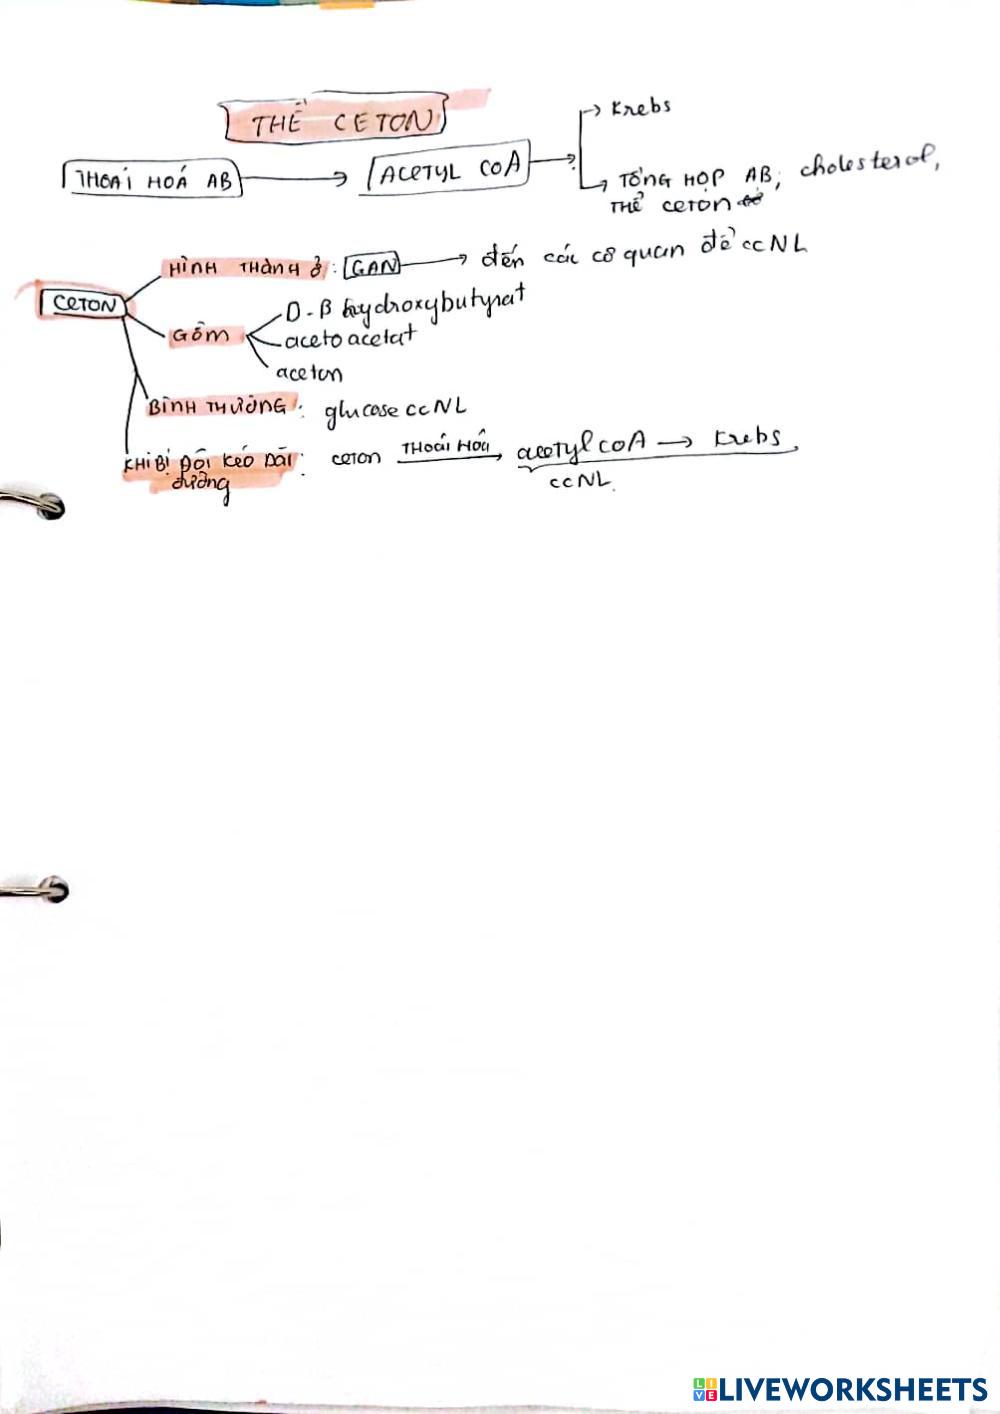 THỂ CETON
THOÁI HOÁ AB → ACETYL COA → Krebs
→ TỔNG HỢP AB, cholesterol,
THỂ CETON
HÌNH THÀNH Ở: GAN → đến các cơ quan để ccNL
CETON
GỒM
D-β hydroxybutyrat
acetoacetat
aceton
BÌNH THƯỜNG: glucose ccNL
KHI BỊ ĐÓI KÉO DÀI: ceton THOÁI HÓA → acetyl coA → Krebs
đường
ccNL.
LIVEWORKSHEETS